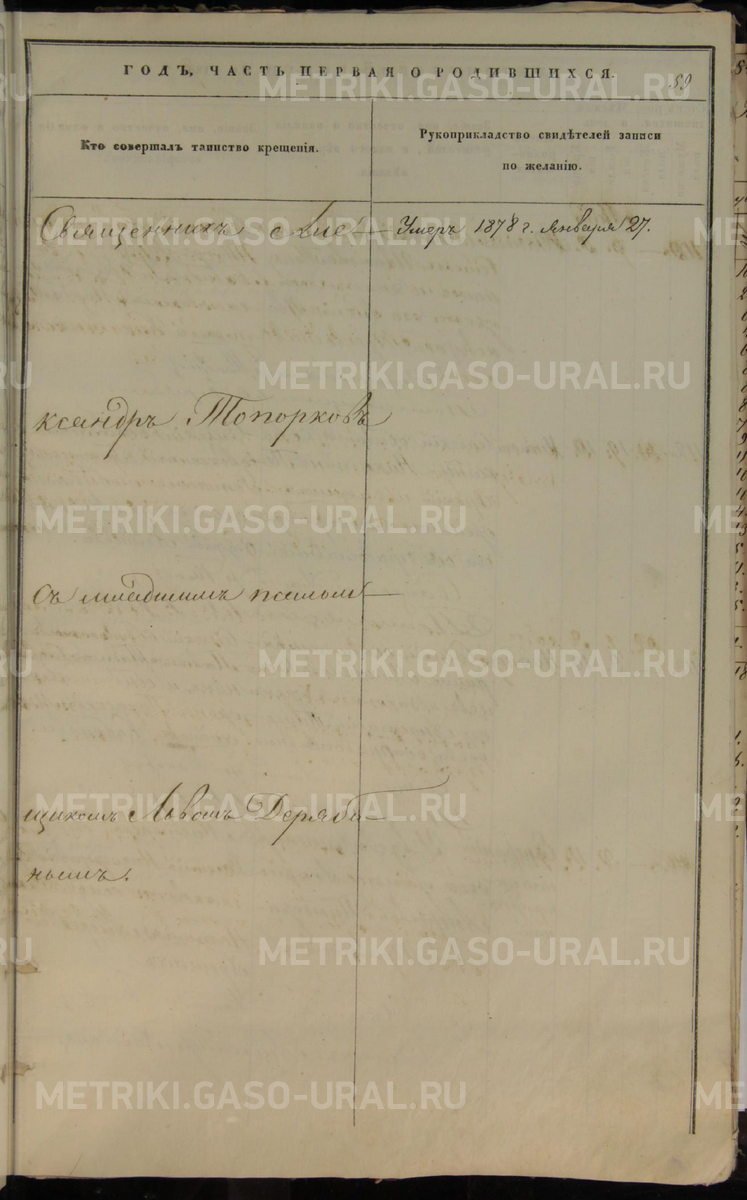 ГОДЪ, ЧАСТЬ ПЕРВАЯ О РОДИВШИХСЯ.
89
Кто совершалъ таинство крещенія.
Рукоприкладство свидѣтелей записи
по желанію.
Священникъ Але-
Умеръ 1878 г. января 27.
ксандръ Топорковъ
съ младшимъ псалом-
щикомъ Львомъ Деряби-
нымъ.
METRIKI.GASO-URAL.RU